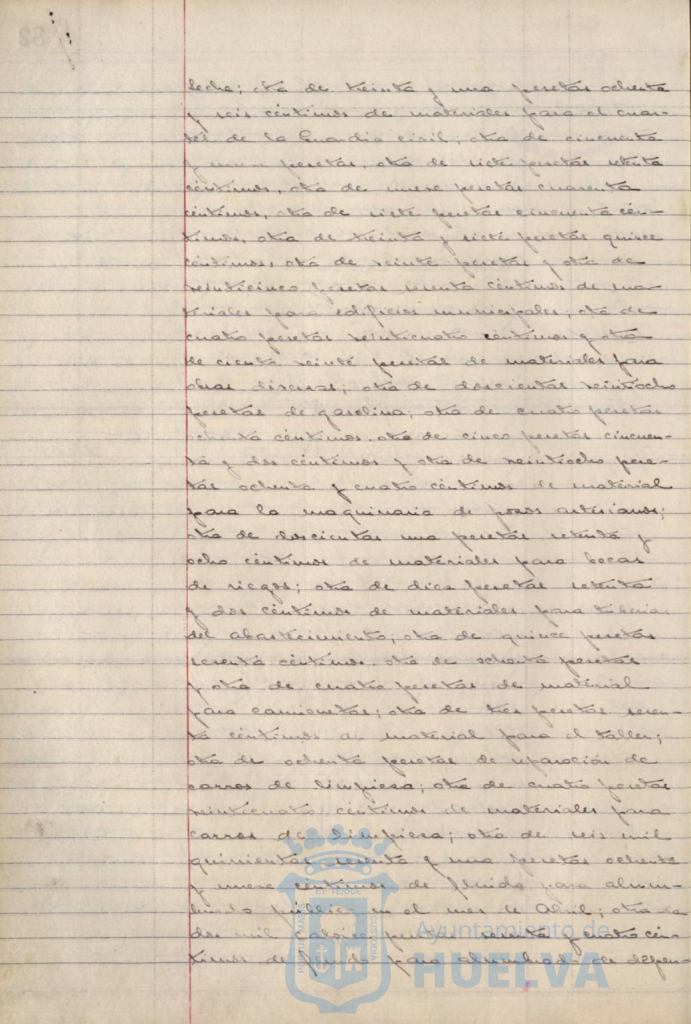 leche; otra de treinta y una pesetas ochenta
y seis céntimos de materiales para el cuar-
tel de la Guardia civil; otra de cincuenta
y nueve pesetas, otra de siete pesetas setenta
céntimos, otra de nueve pesetas cuarenta
céntimos, otra de siete pesetas cincuenta cén-
timos, otra de treinta y siete pesetas quince
céntimos, otra de veinte pesetas y otra de
veinticinco pesetas céntimos de ma-
teriales para edificios municipales; otra de
cuatro pesetas veinticuatro céntimos y otra
de ciento veinte pesetas de materiales para
obras diversas; otra de doscientas veintiocho
pesetas de gasolina; otra de cuatro pesetas
ochenta céntimos, otra de cinco pesetas cincuen-
ta y dos céntimos y otra de veintiocho pese-
tas ochenta y cuatro céntimos de material
para la maquinaria de pozos artesianos;
otra de doscientas una pesetas setenta y
ocho céntimos de materiales para bocas
de riegos; otra de diez pesetas setenta
y dos céntimos de materiales para tuberias
del abastecimiento; otra de quince pesetas
sesenta céntimos, otra de ochenta pesetas
y otra de cuatro pesetas de material
para camionetas; otra de tres pesetas
céntimos de material para el taller;
otra de ochenta pesetas de reparación de
carros de limpieza; otra de cuatro pesetas
veinticuatro céntimos de materiales para
carros de limpieza; otra de seis mil
quinientas y una pesetas ochenta
y nueve céntimos de fluido para alum-
brado público en el mes de Abril; otra de
dos mil catorce pesetas y cuatro cén-
timos de fluido para alumbrado de depen-
Ayuntamiento de
HUELVA